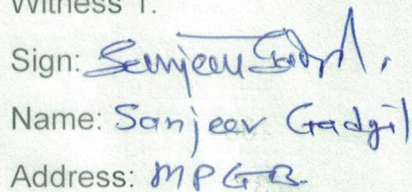 Witness 1.
Sign: Sanjeev Gadgil.
Name: Sanjeev Gadgil
Address: MPGB